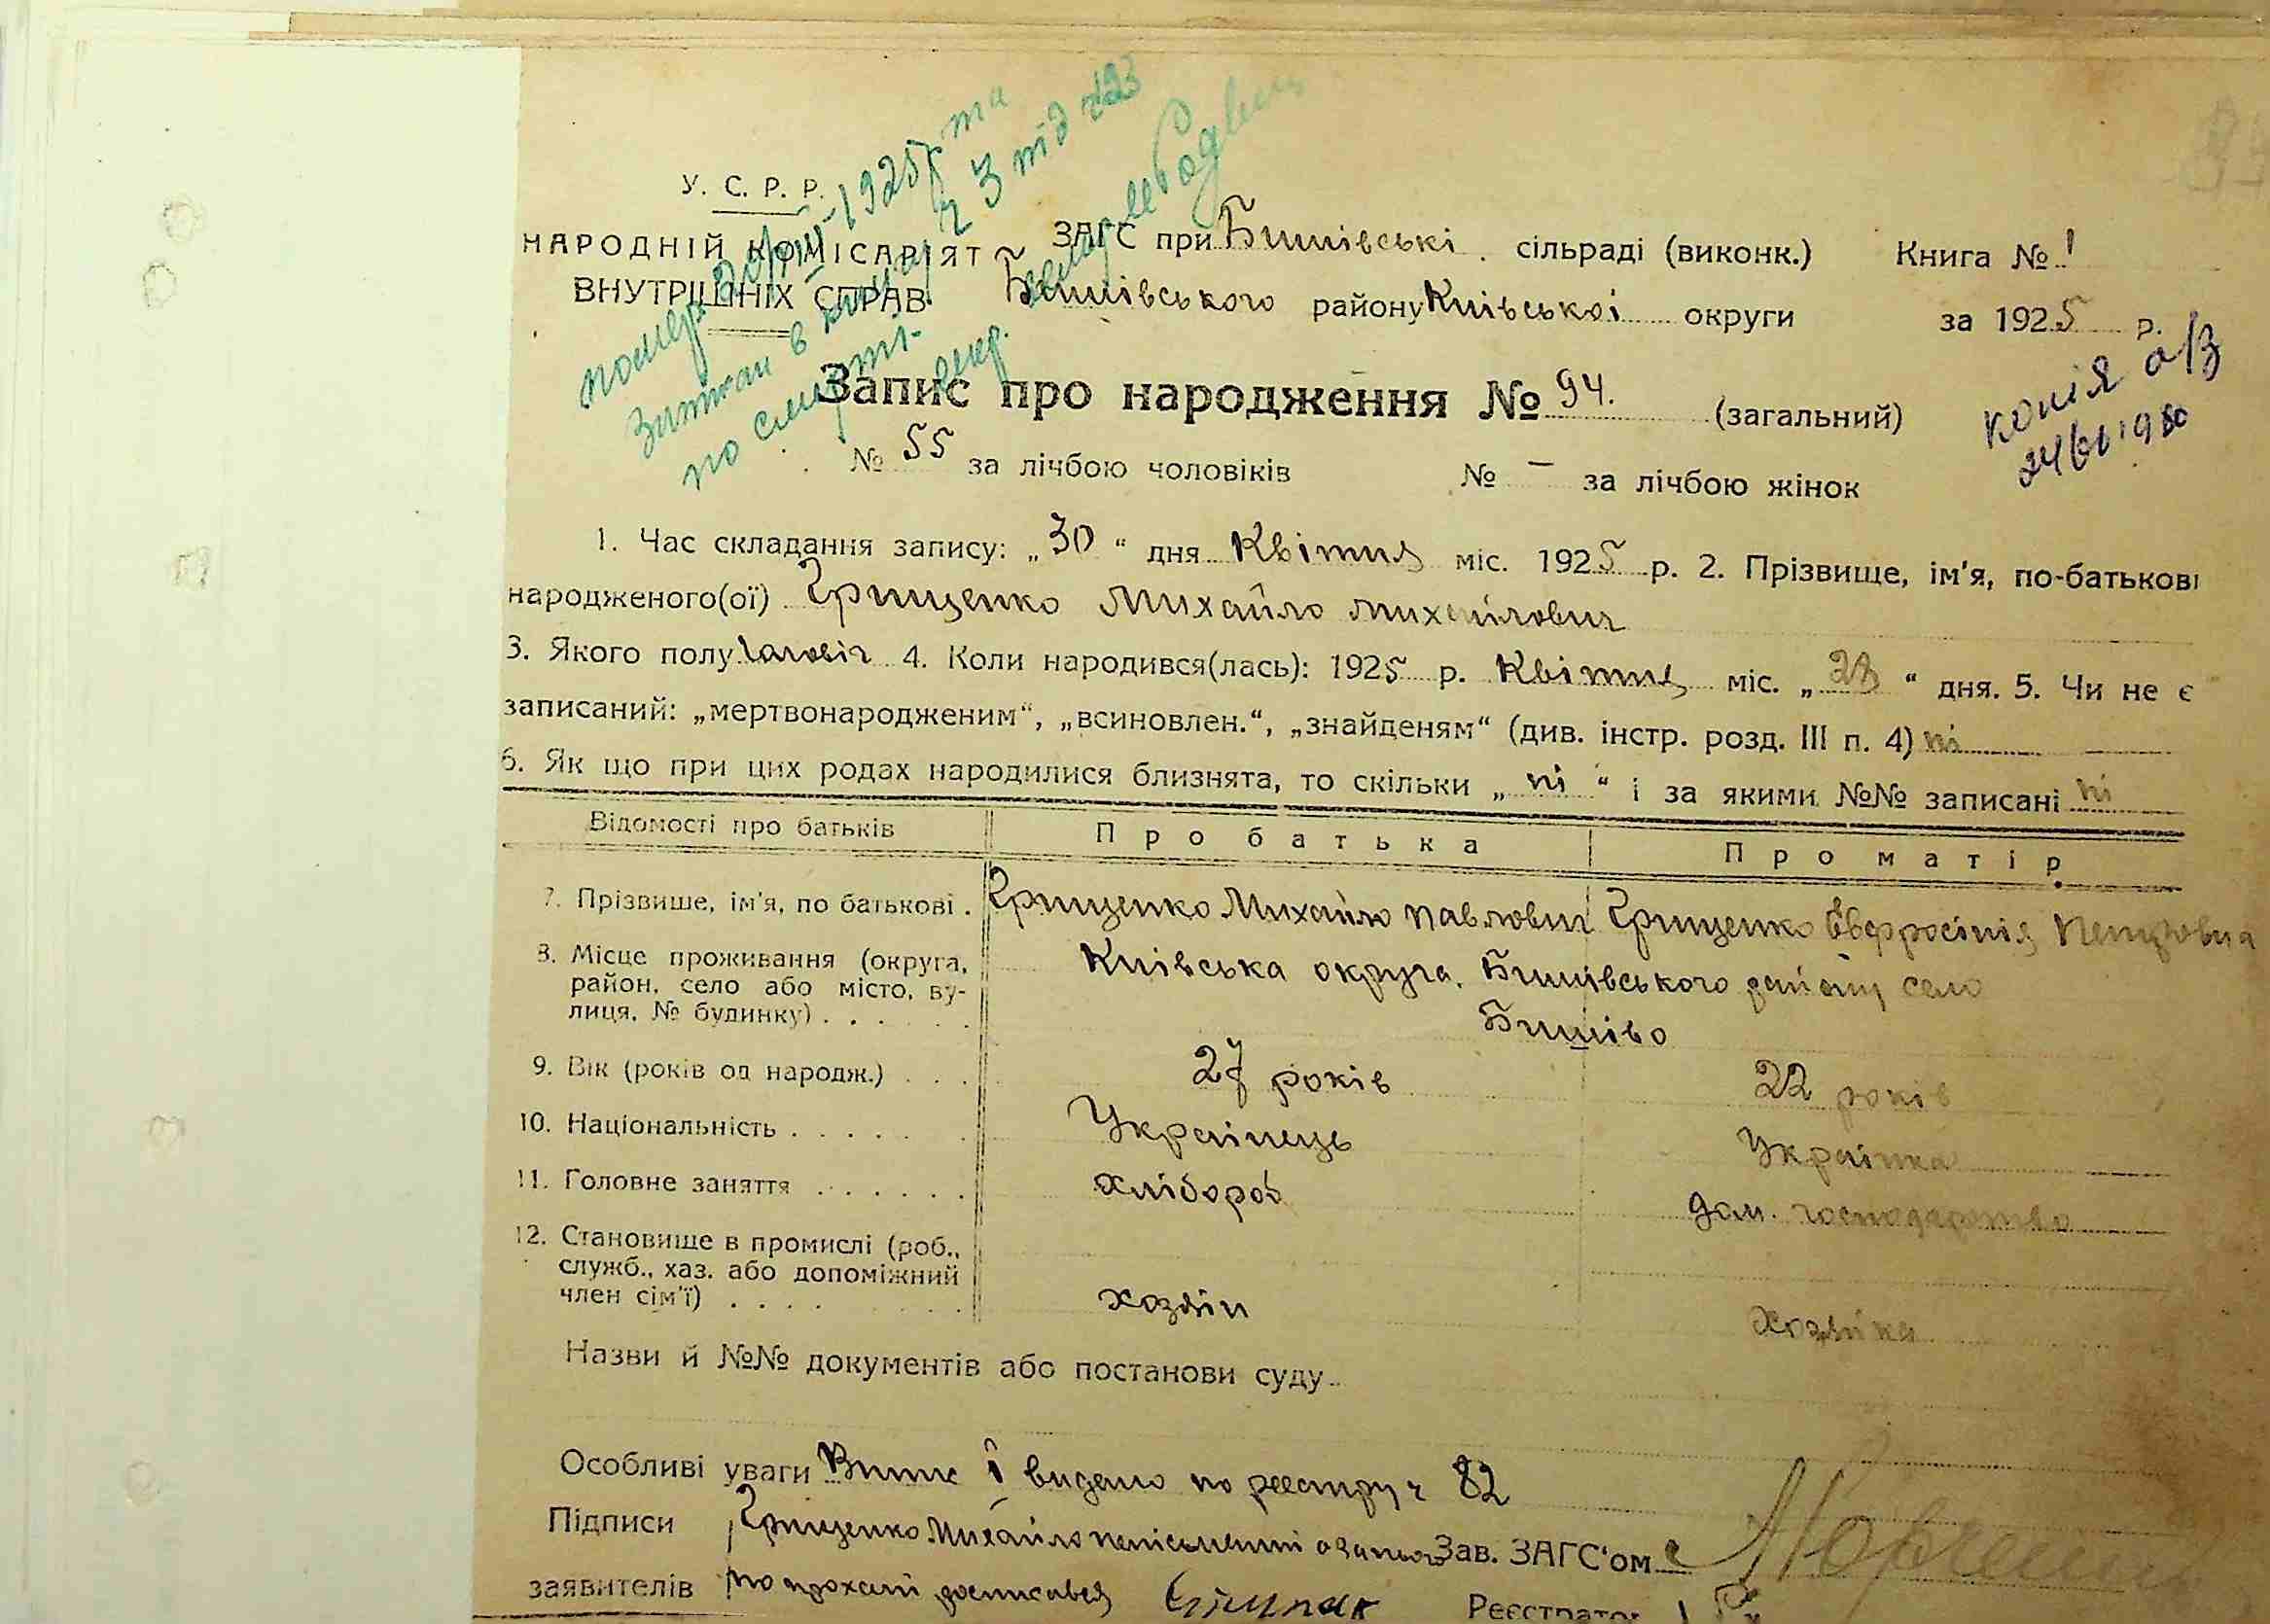 У. С. Р. Р.
НАРОДНІЙ КОМІСАРІЯТ
ВНУТРІШНІХ СПРАВ
ЗАГС при Бишівські сільраді (виконк.) Книга № 1
Бишівського району Київської округи за 1925 р.
помер 1925 р та
записан в
по смерті
копія а/з
Запис про народження № 94. (загальний)
№ 55 за лічбою чоловіків № — за лічбою жінок
1. Час складання запису: „30“ дня Квітня міс. 1925 р. 2. Прізвище, ім'я, по-батькові
народженого(ої) Грищенко Михайло Михайлович
3. Якого полу чоловіч 4. Коли народився(лась): 1925 р. Квітня міс. „28“ дня. 5. Чи не є
записаний: „мертвонародженим“, „всиновлен.“, „знайденям“ (див. інстр. розд. III п. 4) ні
6. Як що при цих родах народилися близнята, то скільки „ні“ і за якими №№ записані ні
Відомості про батьків Про батька Про матір
7. Прізвише, ім'я, по батькові . Грищенко Михайло Павлович Грищенко Евфросінія
8. Місце проживання (округа, район, село або місто, вулиця, № будинку) . . . Київська округа, Бишівського району село
Бишіво
9. Вік (років од народж.) . . . 27 років 22 років
10. Національність . . . . . Українець Українка
11. Головне заняття . . . . . . хлібороб дом. господарство
12. Становище в промислі (роб., служб., хаз. або допоміжний член сім'ї) . . . . хозяін хозяйка
Назви й №№ документів або постанови суду
Особливі уваги Випис і видано по реестру ч 82
Підписи Грищенко Михайло неписьменні а за нього Зав. ЗАГС'ом
заявителів по прохані росписався Реєстратор